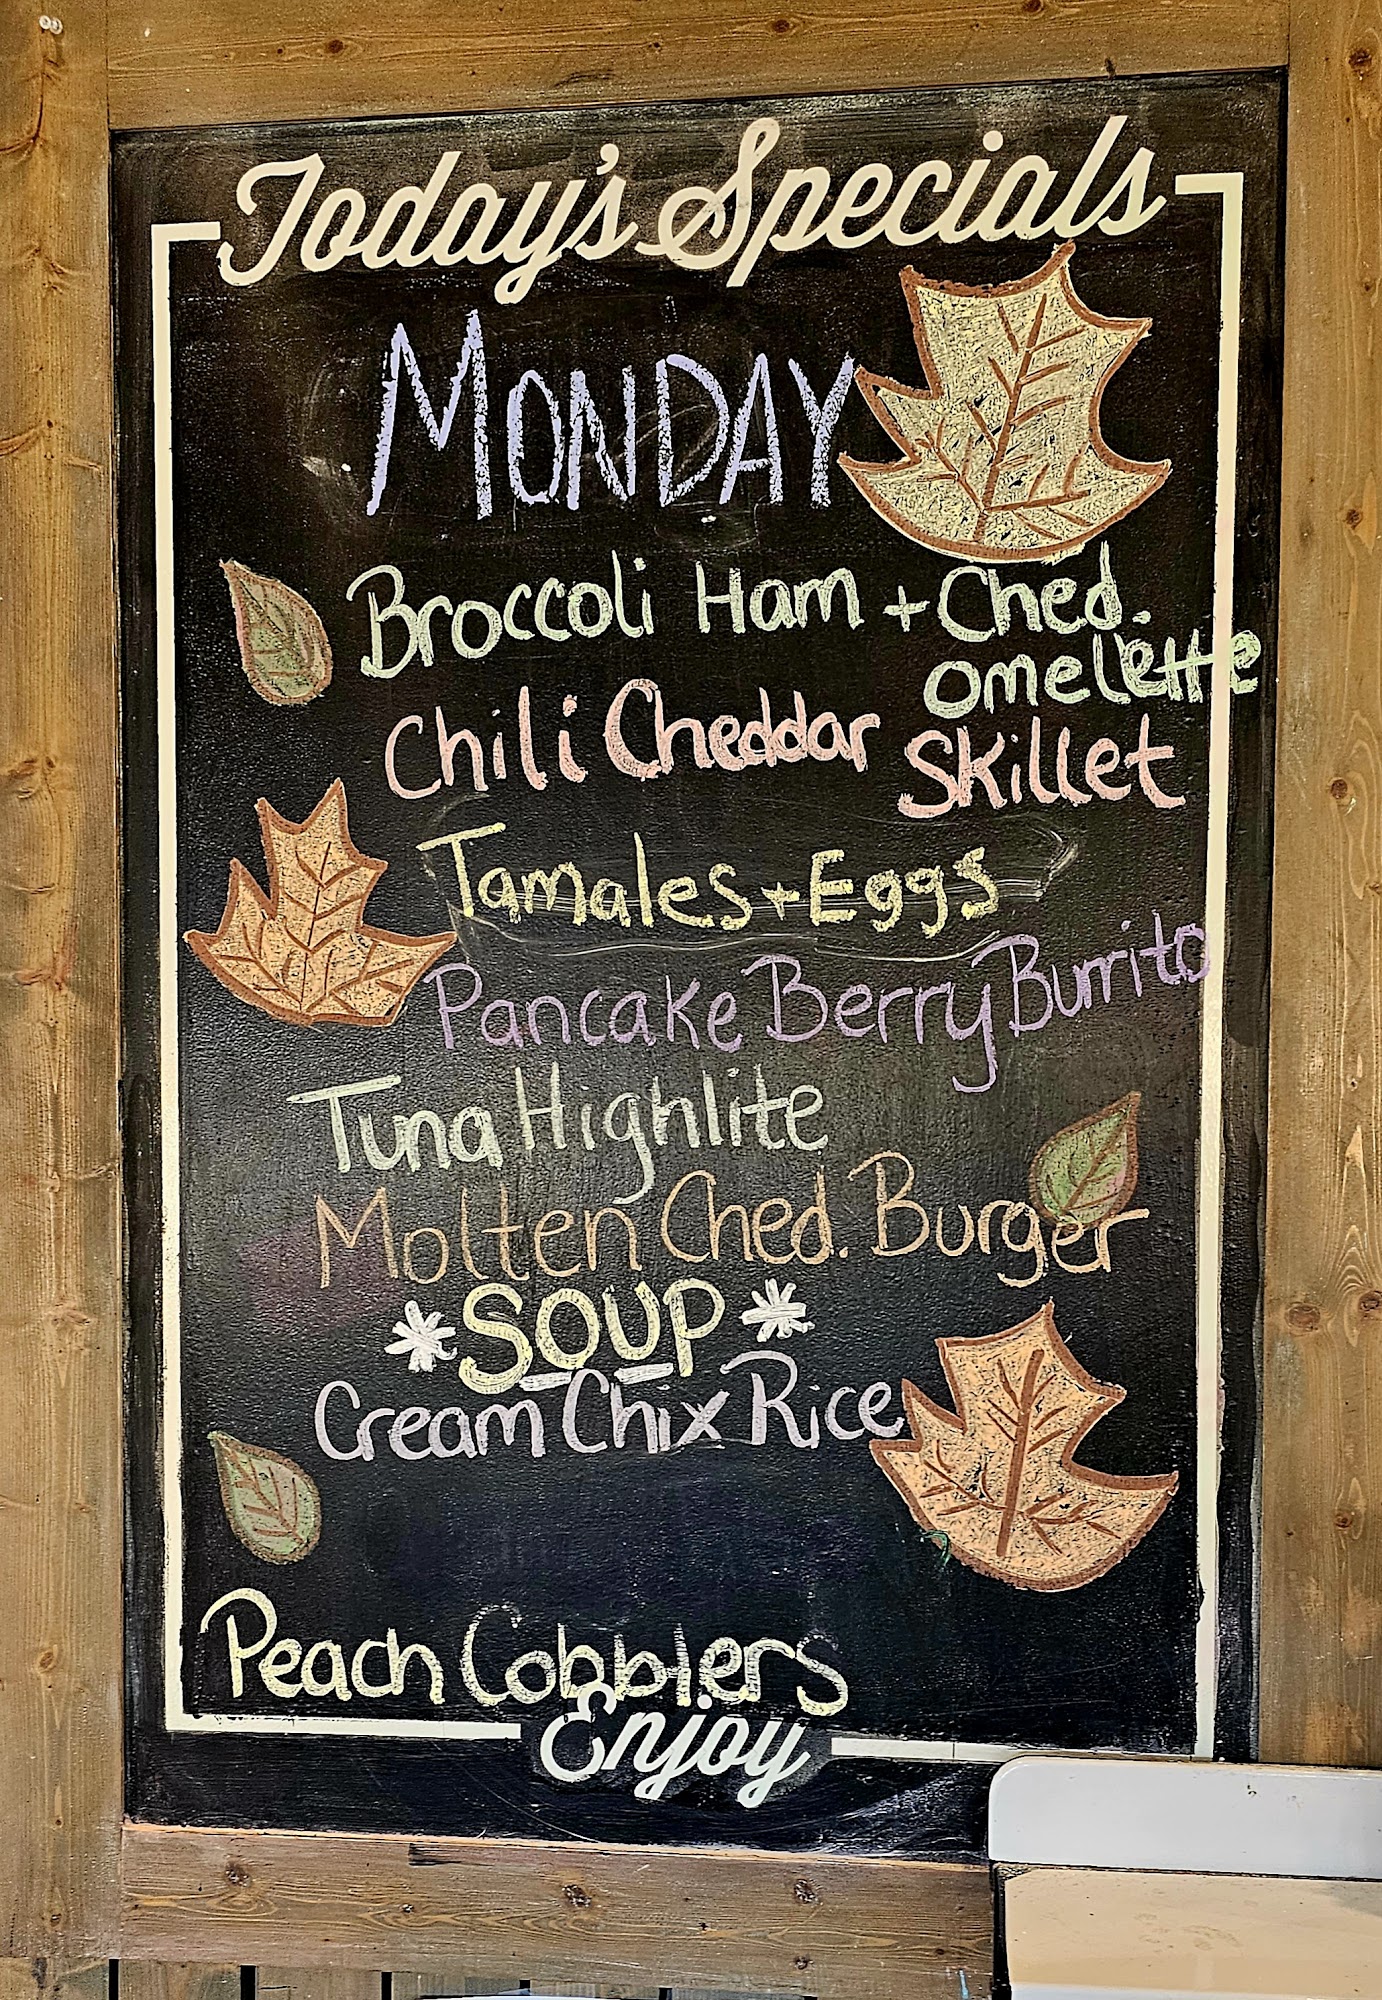 Today's Specials
MONDAY
Broccoli Ham + Ched.
omelette
Chili Cheddar Skillet
Tamales + Eggs
Pancake Berry Burrito
Tuna Highlite
Molten Ched. Burger
* SOUP *
Cream Chix Rice
Peach Cobblers
Enjoy